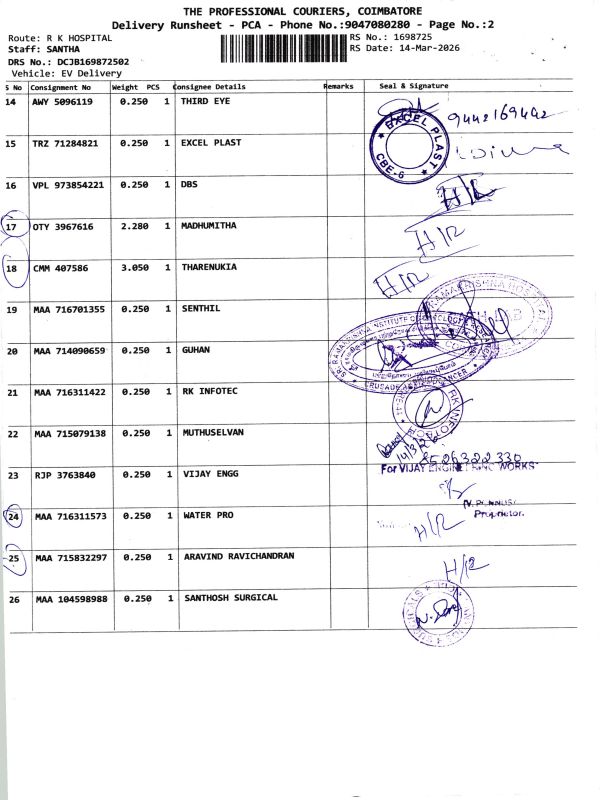 THE PROFESSIONAL COURIERS, COIMBATORE
Delivery Runsheet - PCA - Phone No.:9047080280 - Page No.:2
Route: R K HOSPITAL
RS No.: 1698725
Staff: SANTHA
RS Date: 14-Mar-2026
DRS No.: DCJB169872502
Vehicle: EV Delivery
S No Consignment No Weight PCS Consignee Details Remarks Seal & Signature
14 AWY 5096119 0.250 1 THIRD EYE
9442169442
15 TRZ 71284821 0.250 1 EXCEL PLAST
EXCEL PLAST
CBE-6
16 VPL 973854221 0.250 1 DBS H/R
17 OTY 3967616 2.280 1 MADHUMITHA H/R
18 CMM 407586 3.050 1 THARENUKIA H/R
19 MAA 716701355 0.250 1 SENTHIL
20 MAA 714090659 0.250 1 GUHAN
21 MAA 716311422 0.250 1 RK INFOTEC
22 MAA 715079138 0.250 1 MUTHUSELVAN
14/3/26
8526322330
23 RJP 3763840 0.250 1 VIJAY ENGG
For VIJAY ENGINEERING WORKS
Proprietor.
24 MAA 716311573 0.250 1 WATER PRO H/R
25 MAA 715832297 0.250 1 ARAVIND RAVICHANDRAN H/R
26 MAA 104598988 0.250 1 SANTHOSH SURGICAL